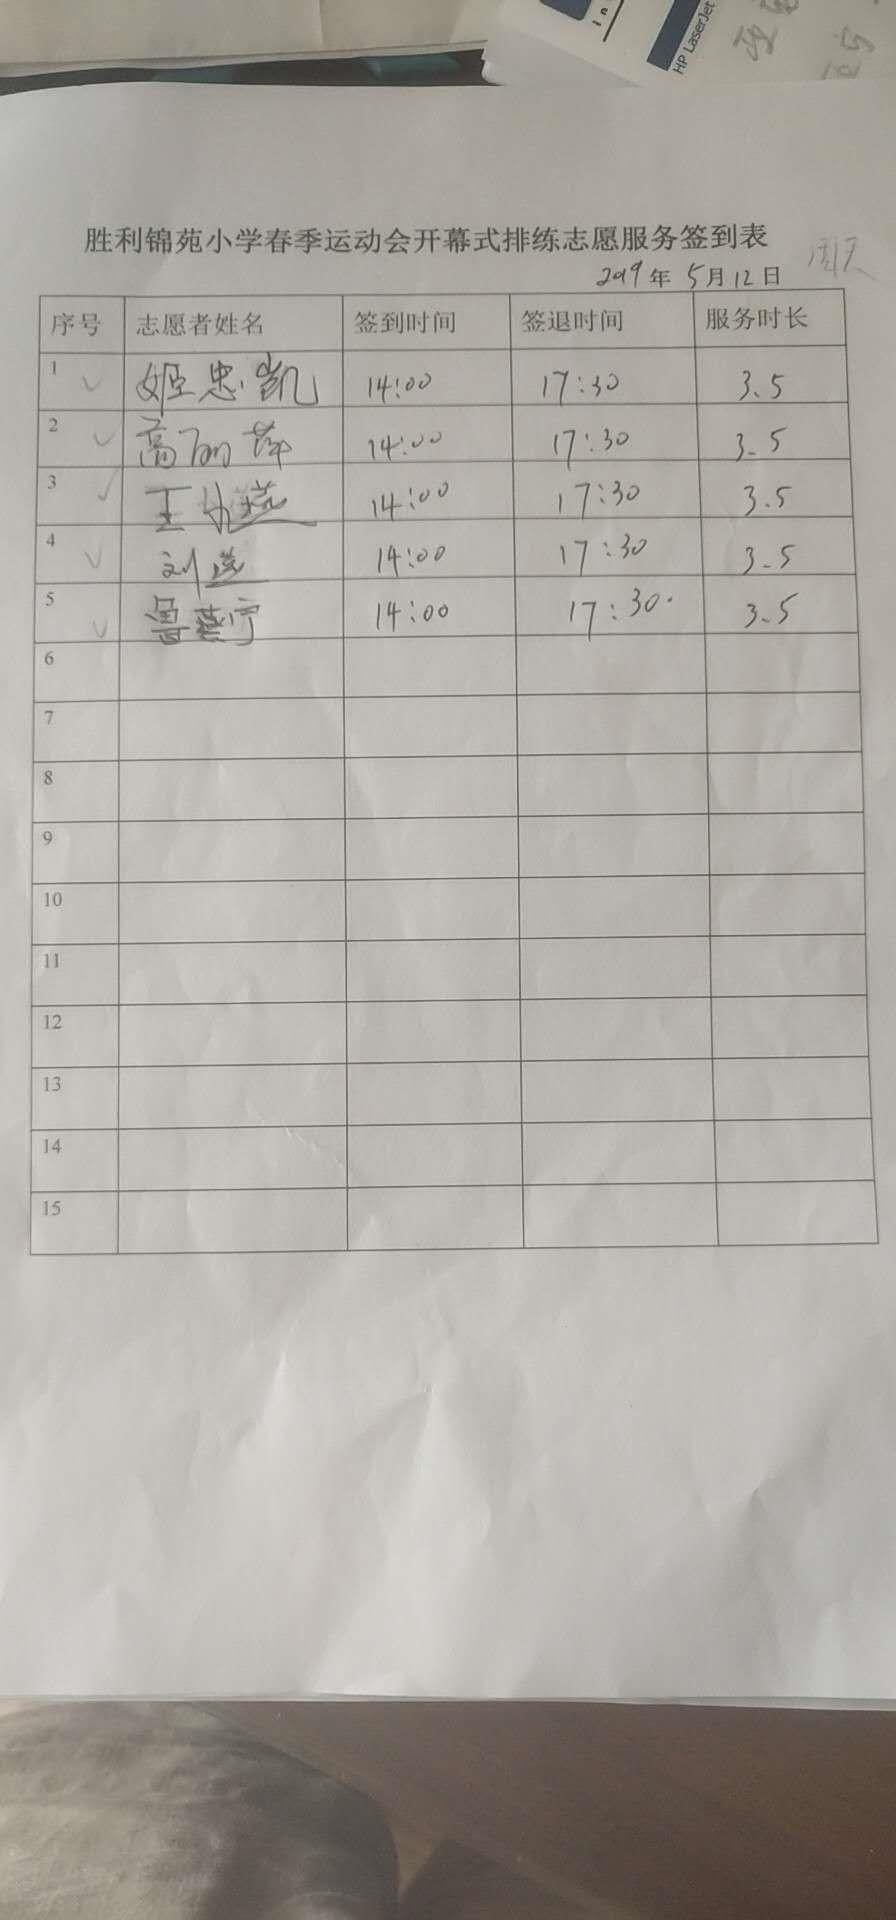 HP LaserJet
胜利锦苑小学春季运动会开幕式排练志愿服务签到表
2019年 5月12日 周天
序号 志愿者姓名 签到时间 签退时间 服务时长
1 ✓ 姬忠凯 14:00 17:30 3.5
2 ✓ 高丽萍 14:00 17:30 3.5
3 ✓ 王 燕 14:00 17:30 3.5
4 ✓ 刘 14:00 17:30 3.5
5 ✓ 鲁燕宁 14:00 17:30. 3.5
6
7
8
9
10
11
12
13
14
15